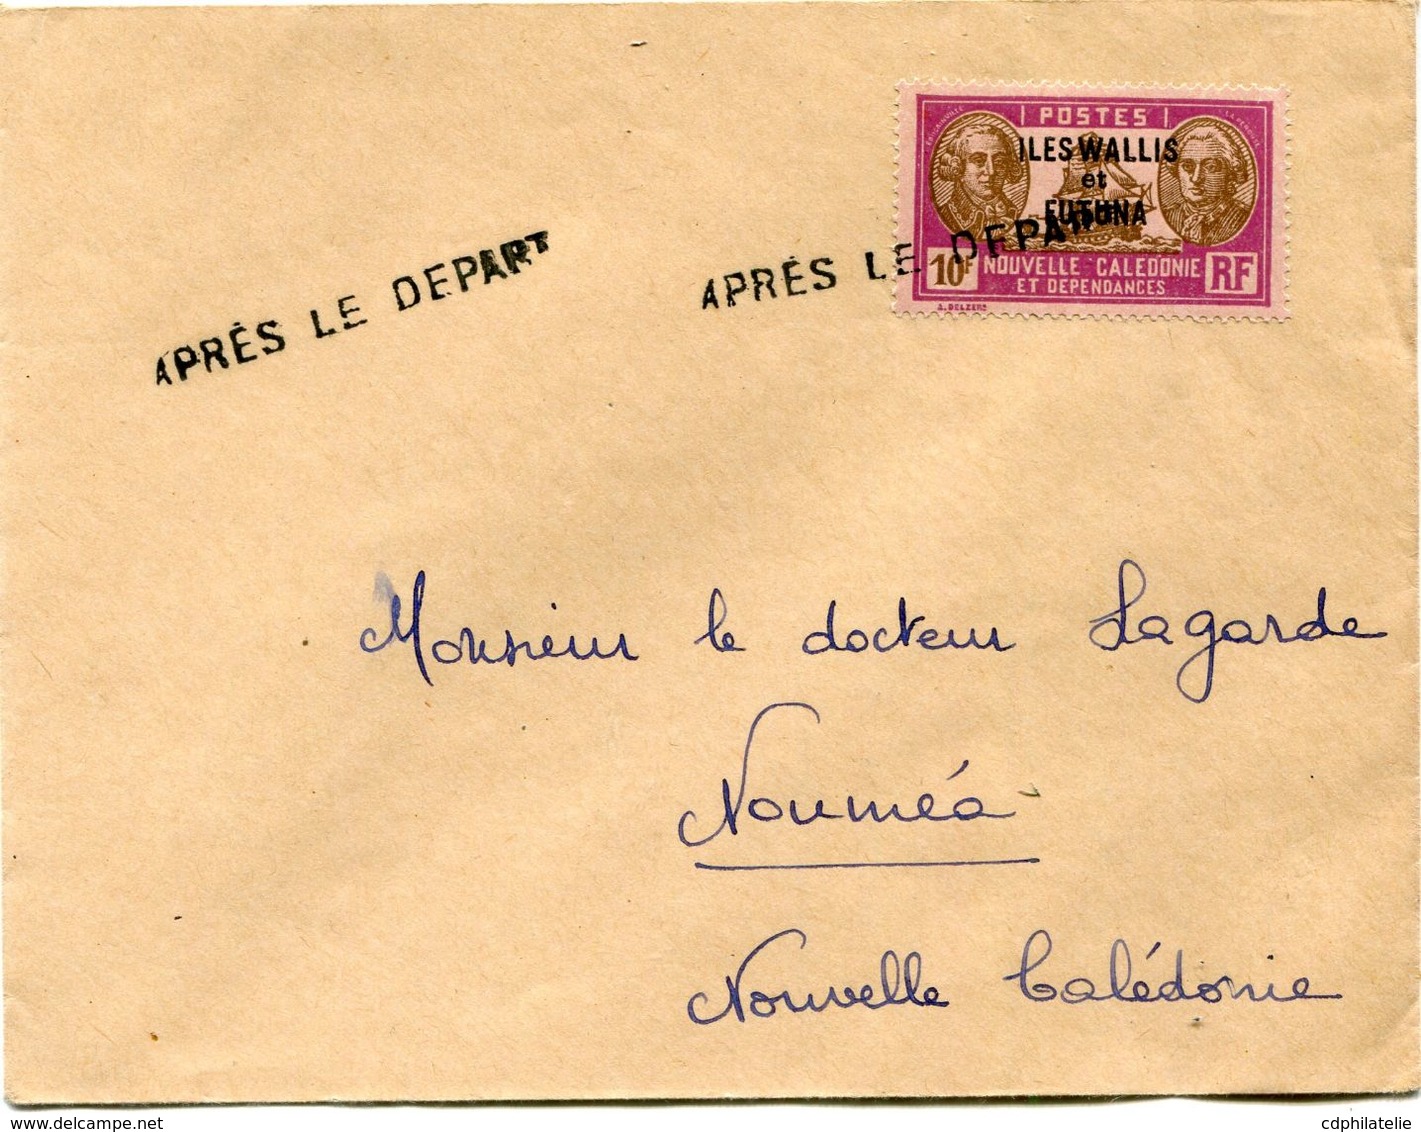 POSTES
BOUGAINVILLE
LA PEROUSE
ILES WALLIS
et
FUTUNA
10F NOUVELLE CALEDONIE RF
ET DEPENDANCES
APRÈS LE DEPART
APRÈS LE DEPART
Monsieur le docteur Lagarde
Nouméa
Nouvelle Calédonie
www.delcampe.net
cdphilatelie